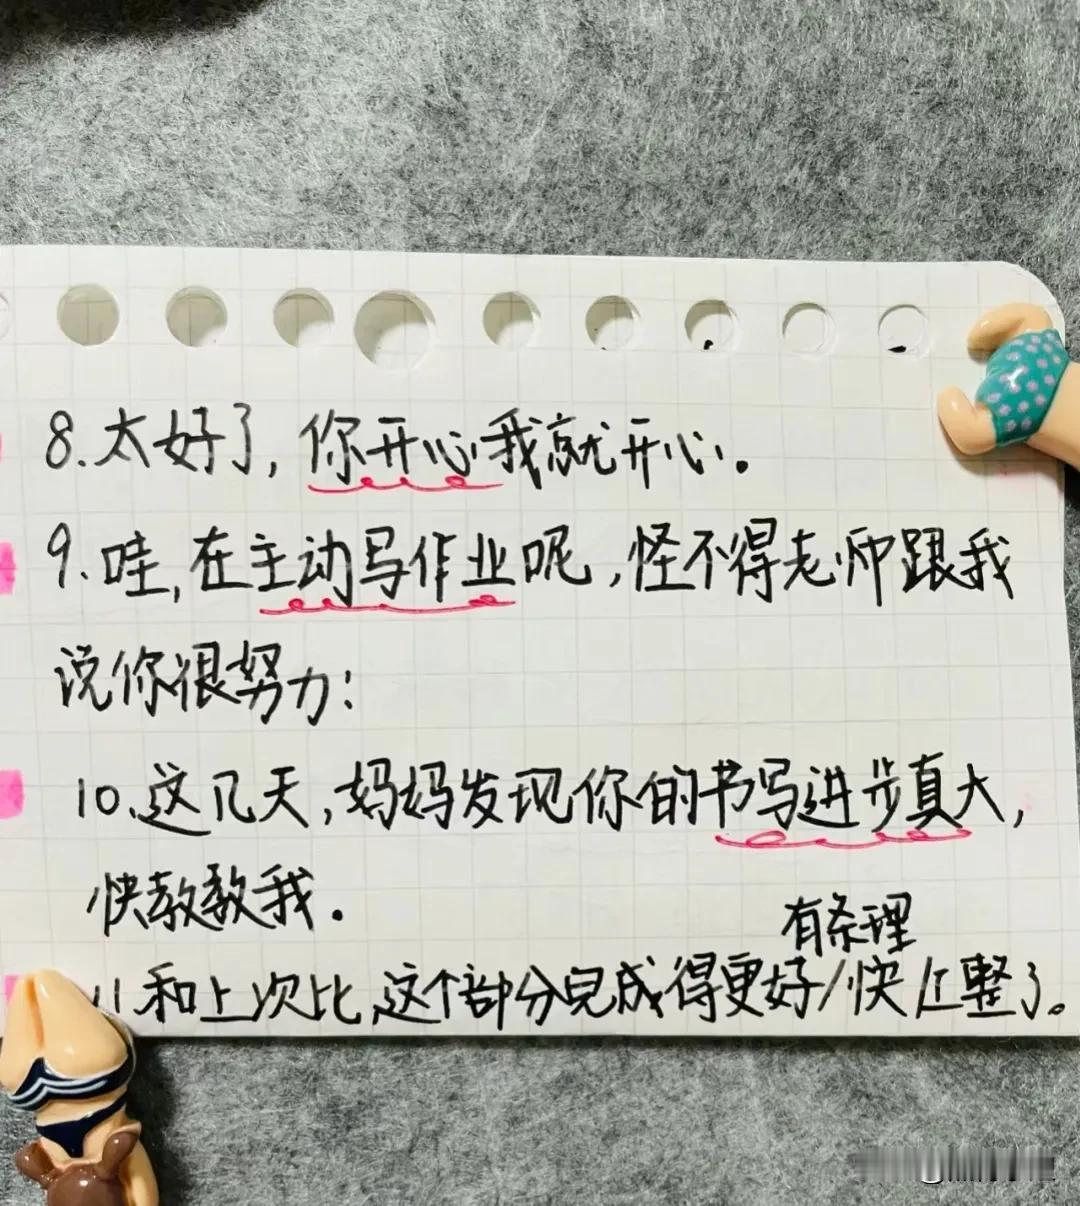 8.太好了,你开心我就开心。
9.哇,在主动写作业呢,怪不得老师跟我
说你很努力:
10.这几天,妈妈发现你的书写进步真大,
快教教我.
有条理
11.和上次比,这个部分完成得更好/快/工整了。